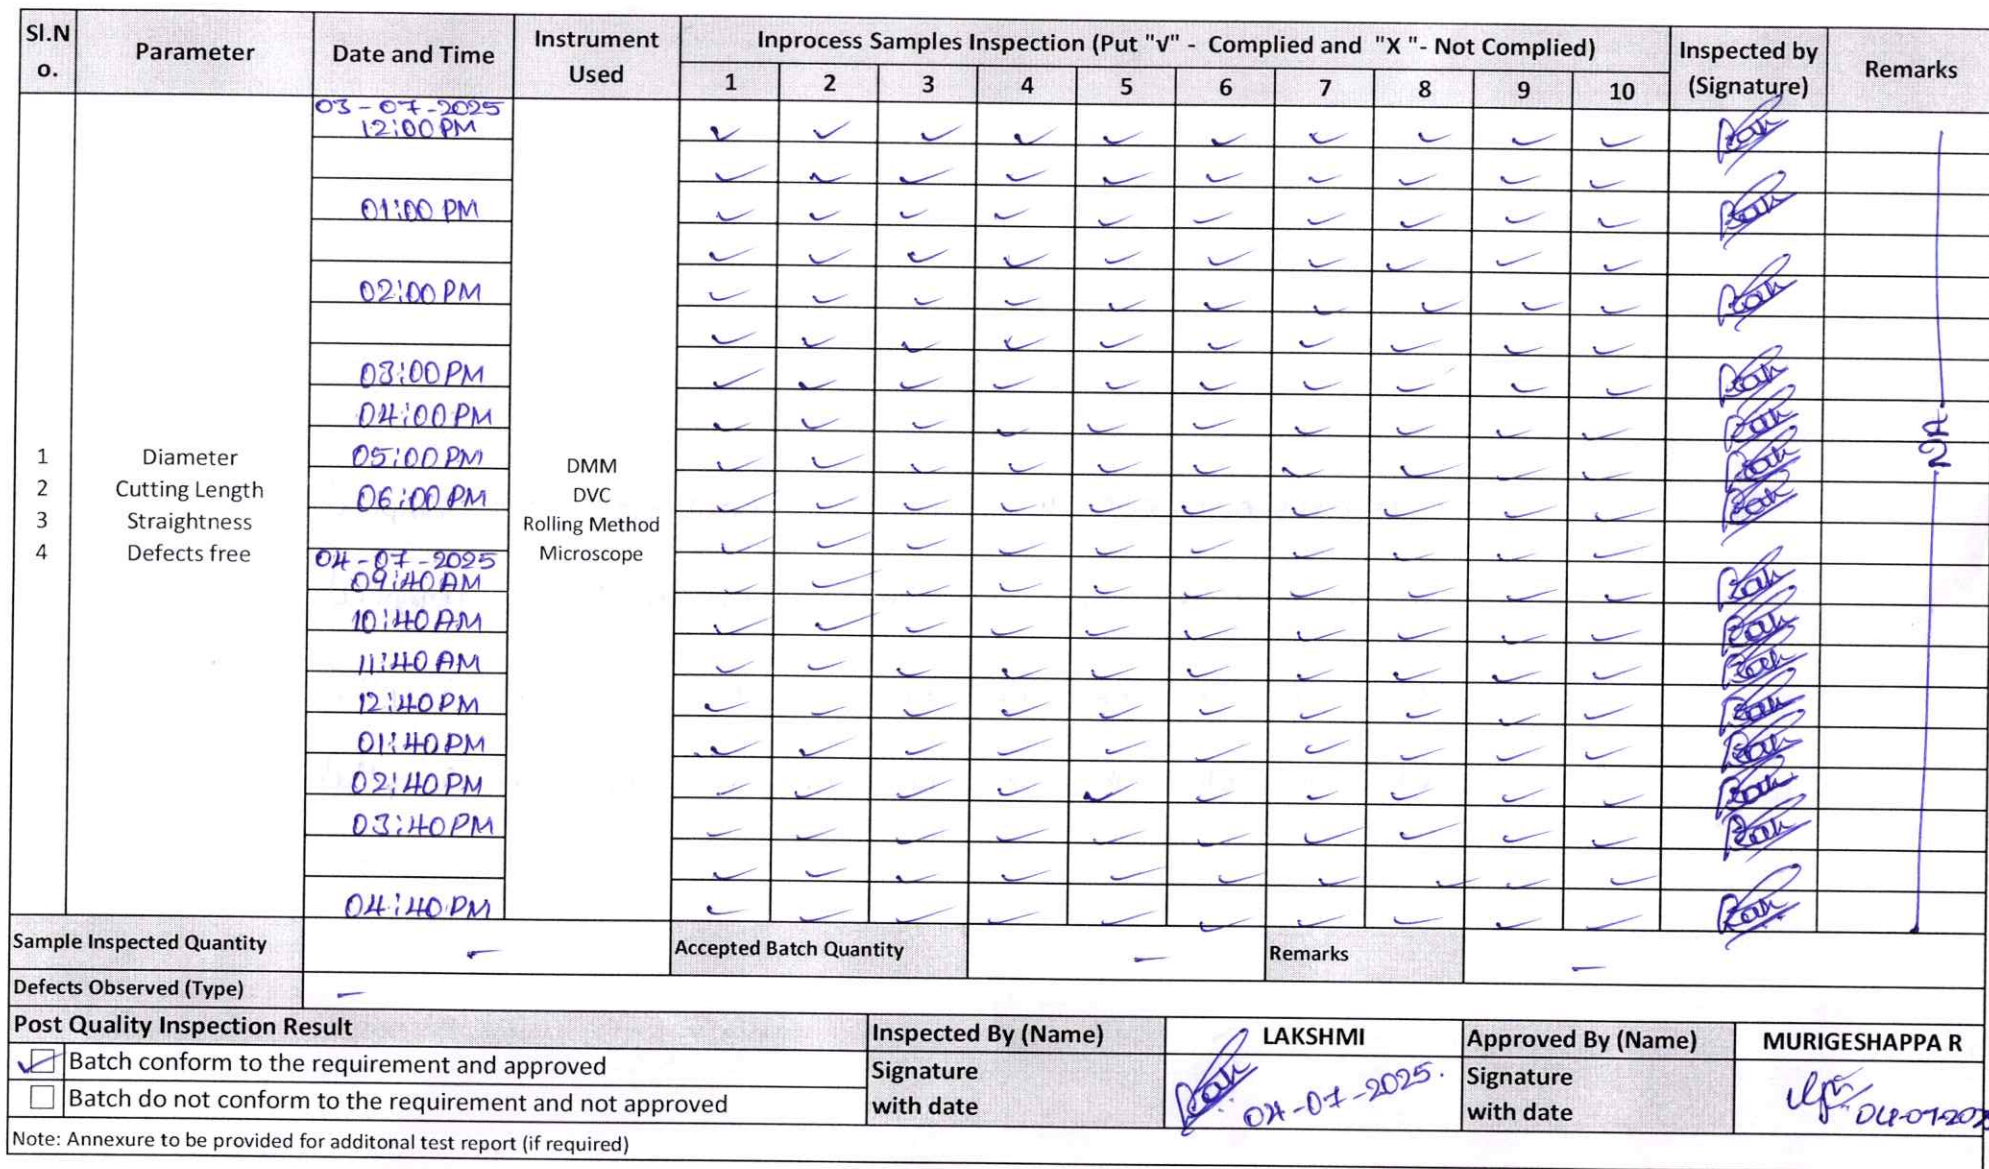 Sl.No. Parameter Date and Time Instrument Used Inprocess Samples Inspection (Put "√" - Complied and "X "- Not Complied) Inspected by (Signature) Remarks
1 2 3 4 5 6 7 8 9 10
03-07-2025
12:00 PM ✓ ✓ ✓ ✓ ✓ ✓ ✓ ✓ ✓ ✓
✓ ✓ ✓ ✓ ✓ ✓ ✓ ✓ ✓ ✓
01:00 PM ✓ ✓ ✓ ✓ ✓ ✓ ✓ ✓ ✓ ✓
✓ ✓ ✓ ✓ ✓ ✓ ✓ ✓ ✓ ✓
02:00 PM ✓ ✓ ✓ ✓ ✓ ✓ ✓ ✓ ✓ ✓
✓ ✓ ✓ ✓ ✓ ✓ ✓ ✓ ✓ ✓
03:00 PM ✓ ✓ ✓ ✓ ✓ ✓ ✓ ✓ ✓ ✓
04:00 PM ✓ ✓ ✓ ✓ ✓ ✓ ✓ ✓ ✓ ✓ NA
1 Diameter 05:00 PM DMM ✓ ✓ ✓ ✓ ✓ ✓ ✓ ✓ ✓ ✓
2 Cutting Length 06:00 PM DVC ✓ ✓ ✓ ✓ ✓ ✓ ✓ ✓ ✓ ✓
3 Straightness Rolling Method ✓ ✓ ✓ ✓ ✓ ✓ ✓ ✓ ✓ ✓
4 Defects free 04-07-2025 Microscope
09:40 AM ✓ ✓ ✓ ✓ ✓ ✓ ✓ ✓ ✓ ✓
10:40 AM ✓ ✓ ✓ ✓ ✓ ✓ ✓ ✓ ✓ ✓
11:40 AM ✓ ✓ ✓ ✓ ✓ ✓ ✓ ✓ ✓ ✓
12:40 PM ✓ ✓ ✓ ✓ ✓ ✓ ✓ ✓ ✓ ✓
01:40 PM ✓ ✓ ✓ ✓ ✓ ✓ ✓ ✓ ✓ ✓
02:40 PM ✓ ✓ ✓ ✓ ✓ ✓ ✓ ✓ ✓ ✓
03:40 PM ✓ ✓ ✓ ✓ ✓ ✓ ✓ ✓ ✓ ✓
✓ ✓ ✓ ✓ ✓ ✓ ✓ ✓ ✓ ✓
04:40 PM ✓ ✓ ✓ ✓ ✓ ✓ ✓ ✓ ✓ ✓
Sample Inspected Quantity - Accepted Batch Quantity - Remarks -
Defects Observed (Type) -
Post Quality Inspection Result Inspected By (Name) LAKSHMI Approved By (Name) MURIGESHAPPA R
✓ Batch conform to the requirement and approved Signature with date 04-07-2025. Signature with date
Batch do not conform to the requirement and not approved
Note: Annexure to be provided for additonal test report (if required)